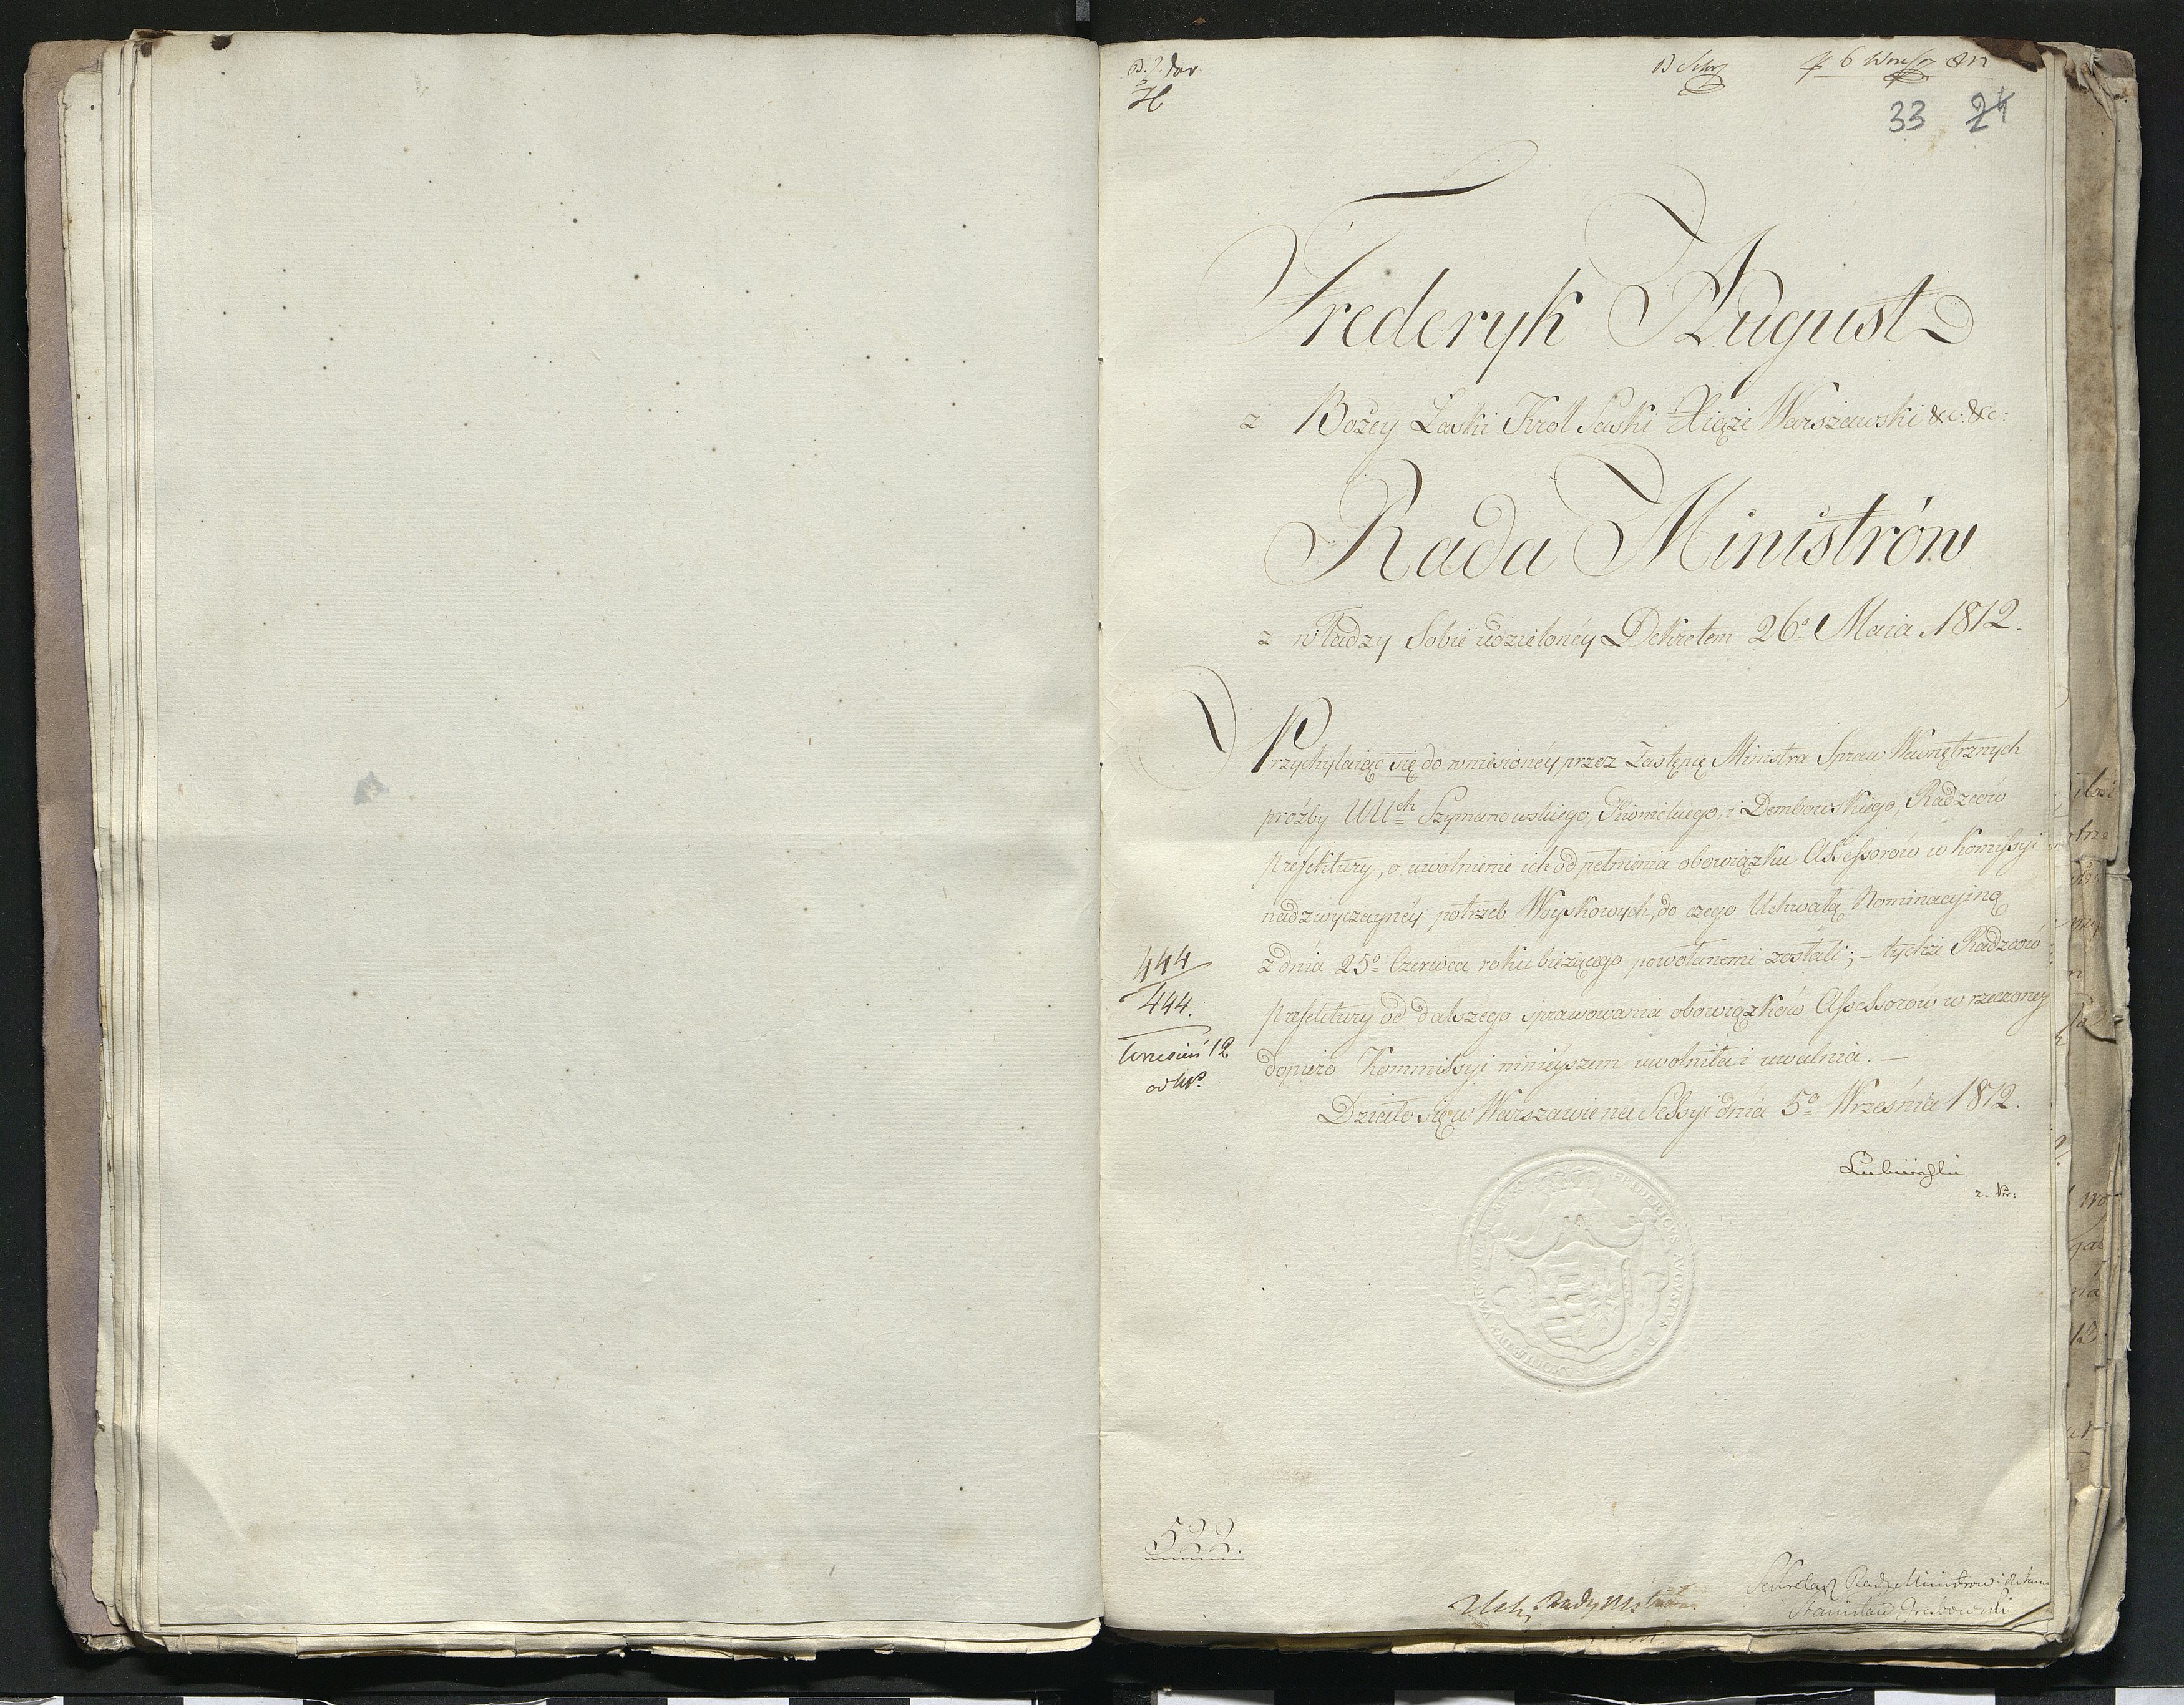 33 24
Frederyk August
z Bożey Łaski Król Saski Xiąże Warszawski &c: &c:
Rada Ministrów
z władzy Sobie udzielonéy Dekretem 26º Maia 1812.
Przychylaiąc się do wniesionéy przez Zastępcę Ministra Spraw Wewnętrznych
prożby UU^ch Szymanowskiego, i Dembowskiego, Radzców
prefektury, o uwolnienie ich od pełnienia obowiązku Assessorów w Komissyi
nadzwyczaynéy potrzeb Woyskowych, do czego Uchwałą Nominacyiną
z dnia 25º Czerwca roku bieżącego powołanemi zostali; – tychże Radzców
prefektury od dalszego sprawowania obowiązków Assessorów w rzeczoney
dopiero Kommissyi ninieyszem uwolniła i uwalnia. –
Działo się w Warszawie na Sessyi dnia 5º Września 1812.
444
444.
Wrzesień 12
Lubieński
z. Pr:
FRIDERICVS AVGVSTVS D. G. REX SAXONIAE DVX VARSOVIAE
522.
Sekretarz Rady Ministrow
Stanisław Grabowski
Uch. Rady Mistrów